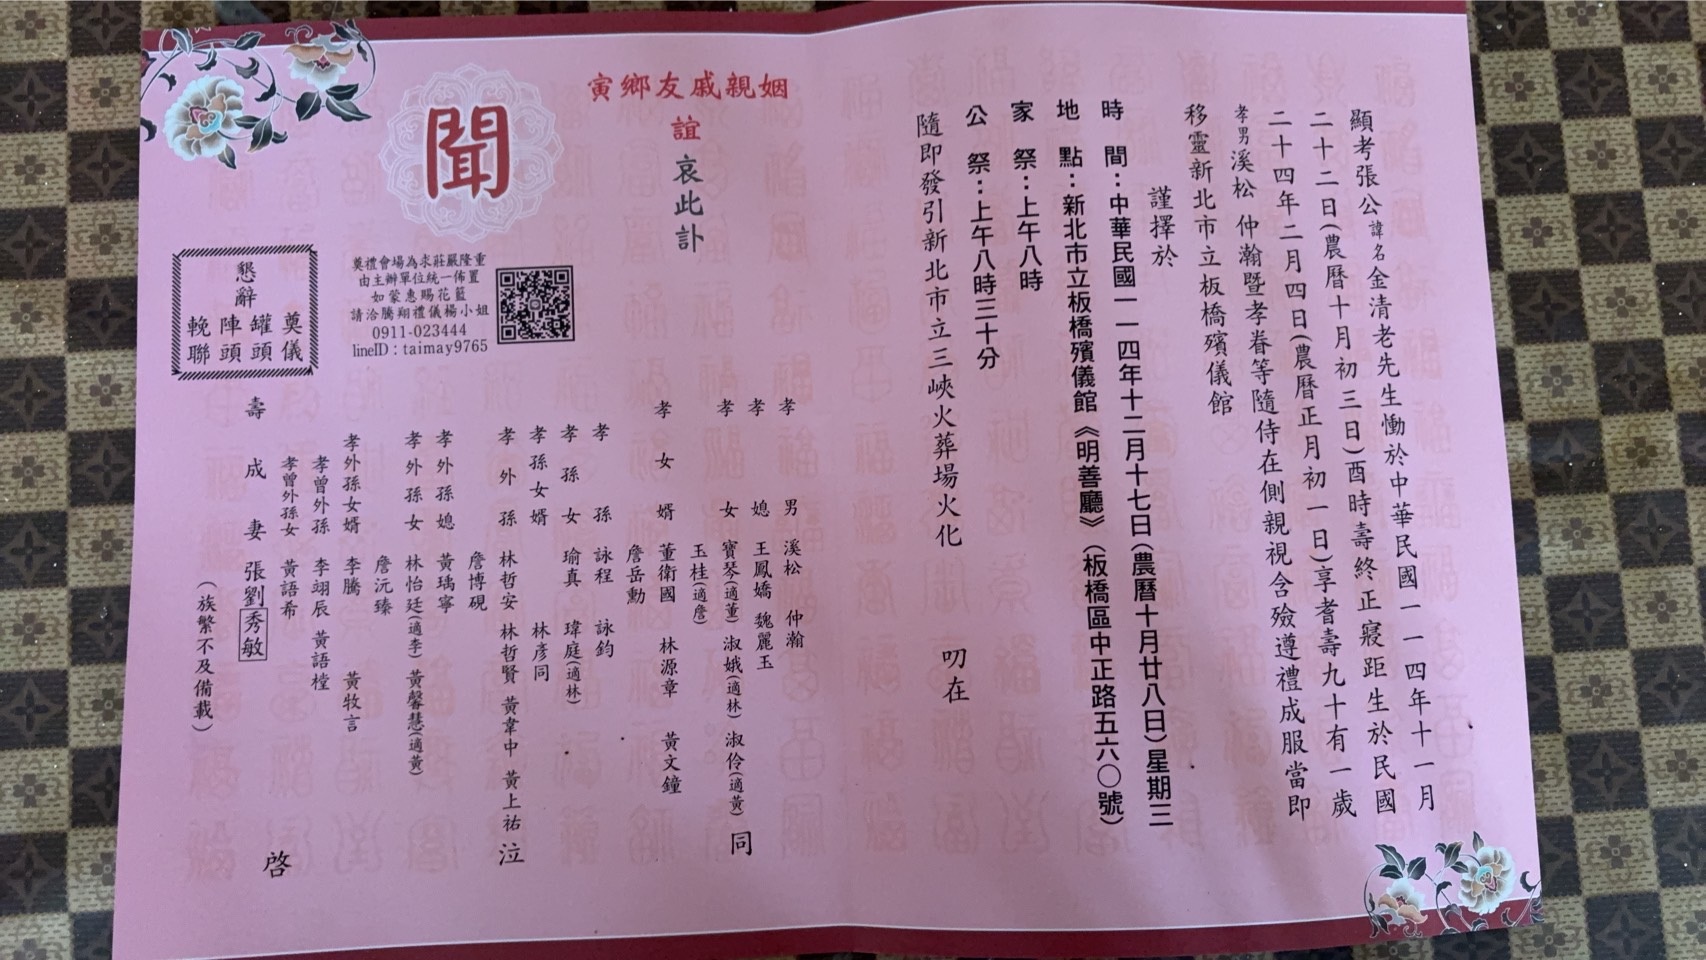 顯考張公諱名金清老先生慟於中華民國一一四年十一月
二十二日(農曆十月初三日)酉時壽終正寢距生於民國
二十四年二月四日(農曆正月初一日)享耆壽九十有一歲
孝男溪松 仲瀚暨孝眷等隨侍在側親視含殮遵禮成服當即
移靈新北市立板橋殯儀館
謹擇於
時 間：中華民國一一四年十二月十七日(農曆十月廿八日)星期三
地 點：新北市立板橋殯儀館《明善廳》(板橋區中正路五六〇號)
家 祭：上午八時
公 祭：上午八時三十分
隨即發引新北市立三峽火葬場火化 叨在
姻親戚友鄉寅
誼 哀此訃
聞
孝 男 溪松 仲瀚
孝 媳 王鳳嬌 魏麗玉
孝 女 寶琴(適董) 淑娥(適林) 淑伶(適黃) 同
玉桂(適詹)
孝 女 婿 董衛國 林源章 黃文鐘
詹岳勳
孝 孫 詠程 詠鈞
孝 孫 女 瑜真 瑋庭(適林)
孝 孫 女 婿 林彥同
孝 外 孫 林哲安 林哲賢 黃韋中 黃上祐 泣
詹博硯
孝 外 孫 媳 黃瑀寧
孝 外 孫 女 林怡廷(適李) 黃馨慧(適黃)
詹沅臻
孝外孫女婿 李騰 黃牧言
孝曾外孫 李翊辰 黃語樘
孝曾外孫女 黃語希
壽 成 妻 張劉秀敏 啓
(族繁不及備載)
奠禮會場為求莊嚴隆重
由主辦單位統一佈置
如蒙惠賜花籃
請洽騰翔禮儀楊小姐
0911-023444
lineID：taimay9765
懇辭
奠儀
罐頭
陣頭
輓聯